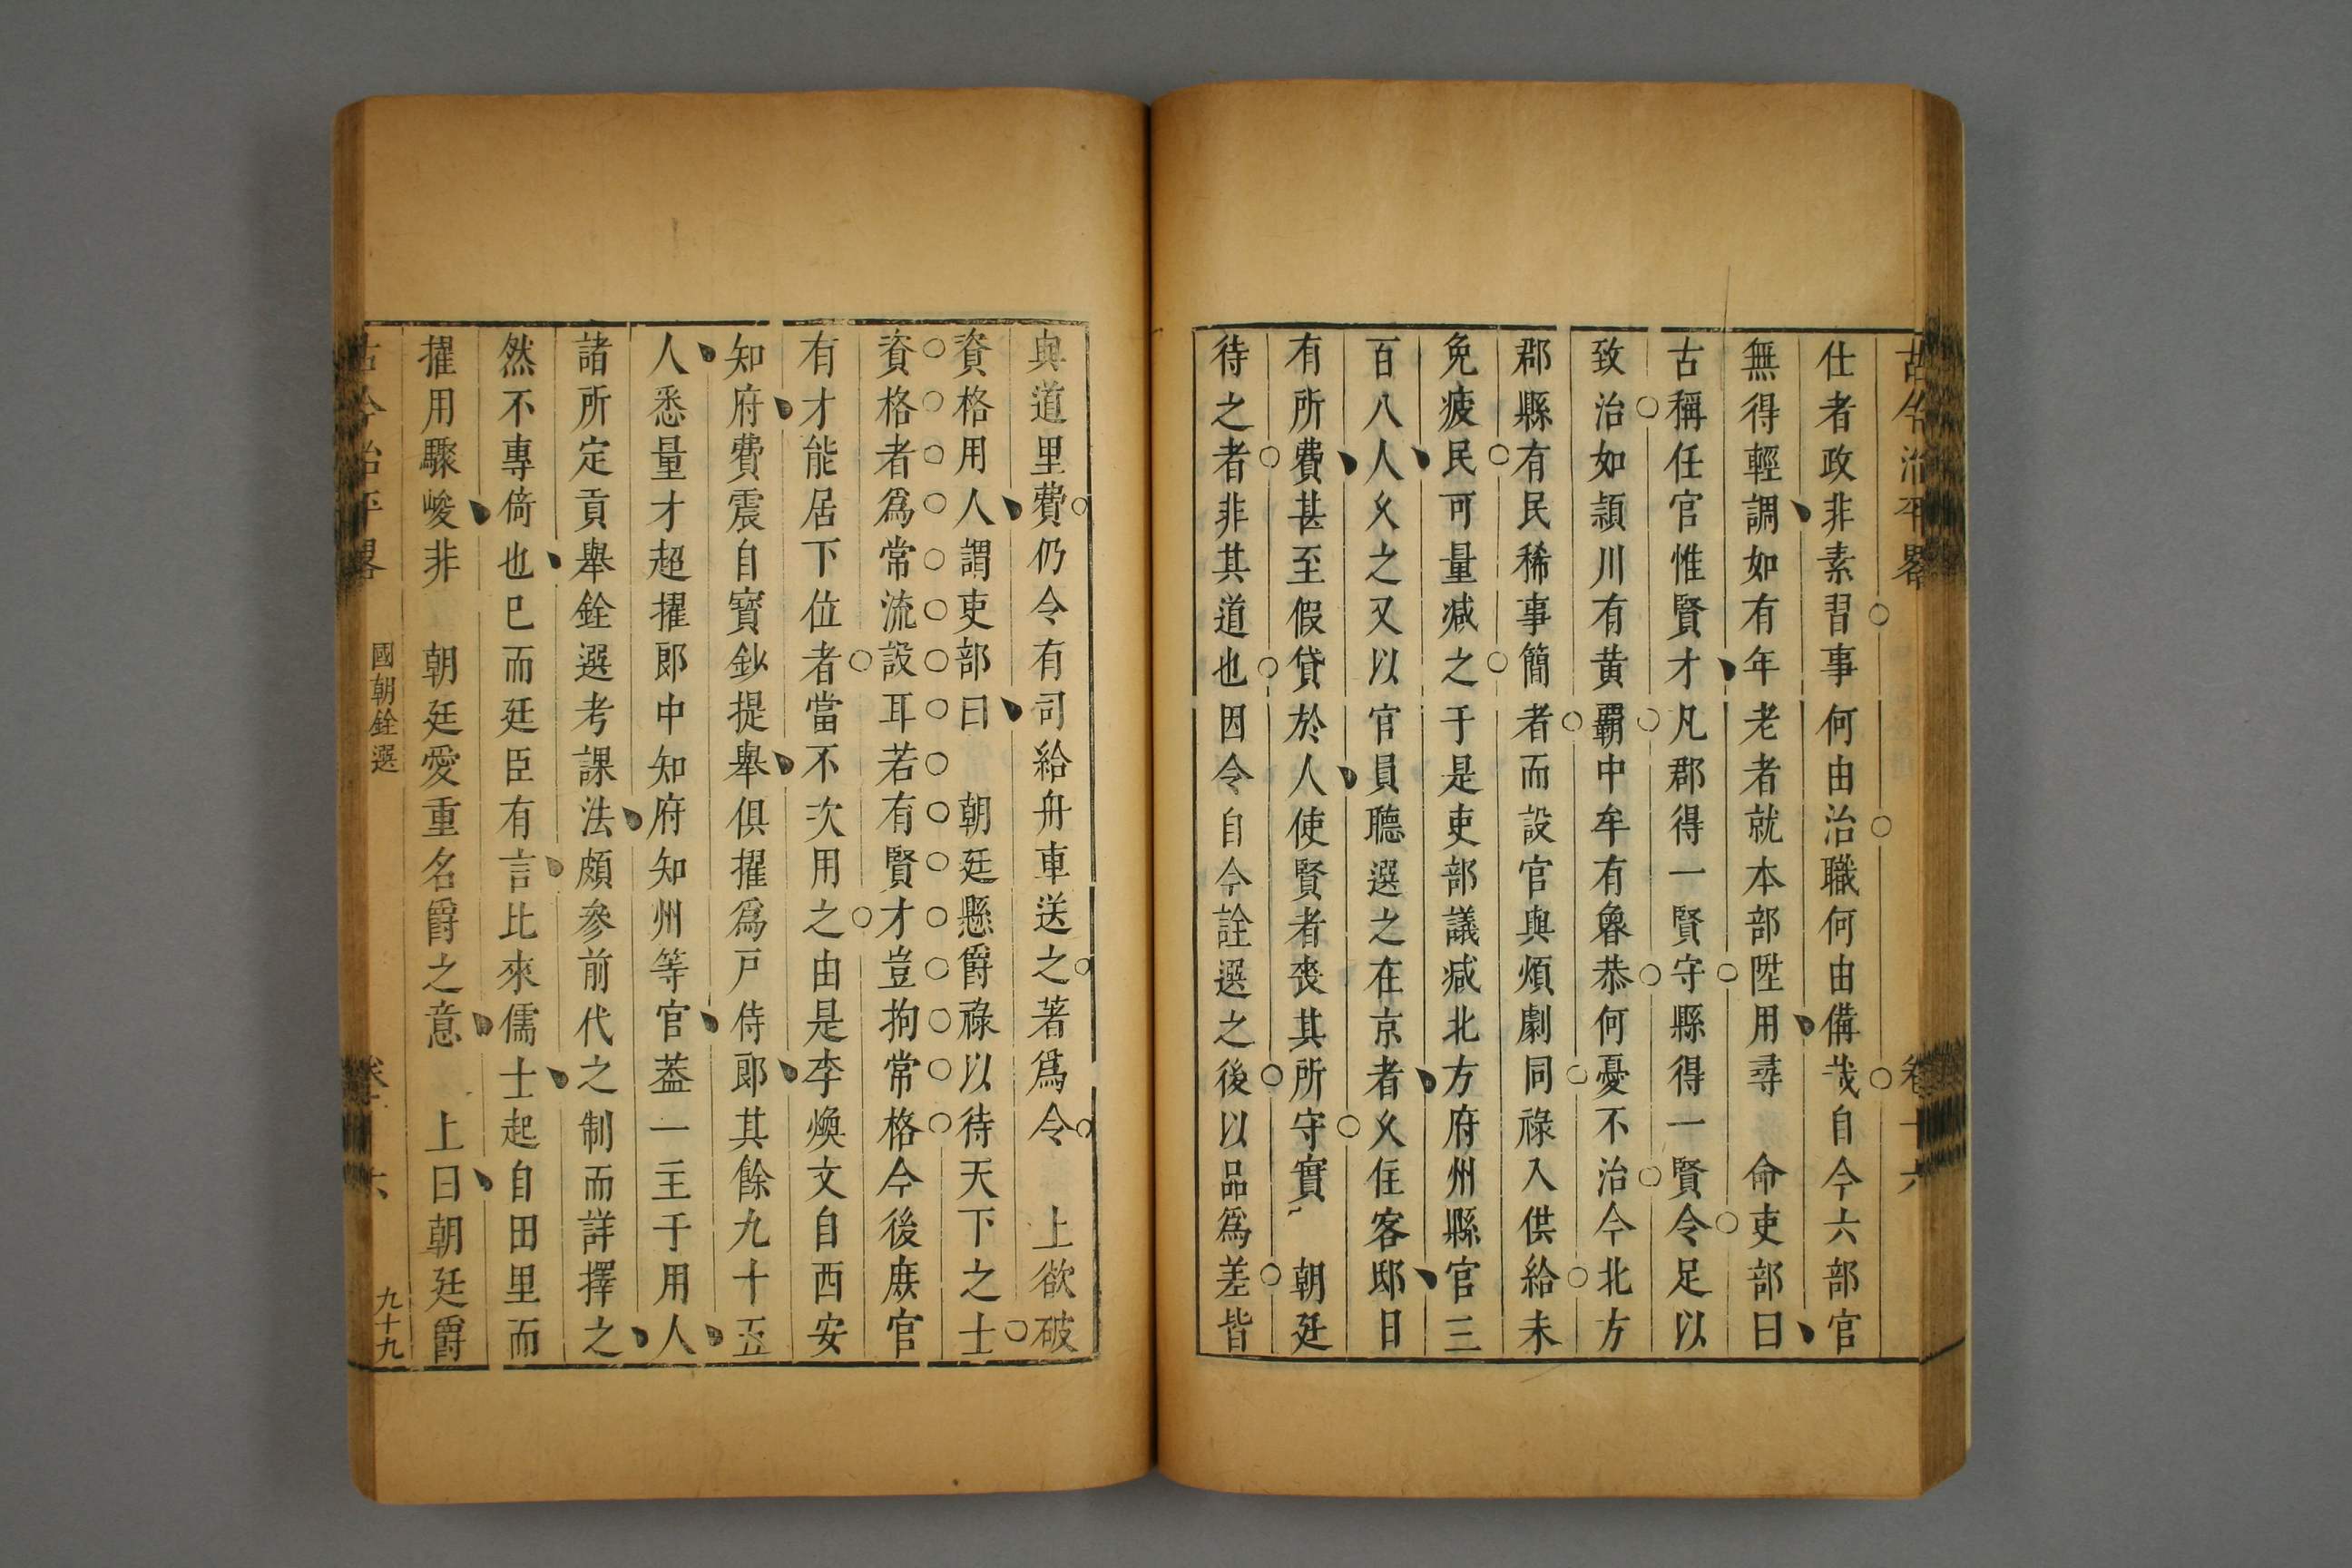 古今治平畧 卷十六
仕者政非素習事何由治職何由備哉自今六部官
無得輕調如有年老者就本部陞用尋 命吏部曰
古稱任官惟賢才凡郡得一賢守縣得一賢令足以
致治如頴川有黃霸中牟有魯恭何憂不治今北方
郡縣有民稀事簡者而設官與煩劇同祿入供給未
免疲民可量减之于是吏部議减北方府州縣官三
百八人久之又以官員聽選之在京者久住客邸日
有所費甚至假貸於人使賢者喪其所守實 朝廷
待之者非其道也因令自今詮選之後以品爲差皆
與道里費仍令有司給舟車送之著爲令 上欲破
資格用人謂吏部曰 朝廷懸爵祿以待天下之士
資格者爲常流設耳若有賢才豈拘常格今後庶官
有才能居下位者當不次用之由是李煥文自西安
知府費震自寳鈔提舉俱擢爲戸侍郎其餘九十五
人悉量才超擢郎中知府知州等官葢一主于用人
諸所定貢舉銓選考課法頗參前代之制而詳擇之
然不專倚也已而廷臣有言比來儒士起自田里而
擢用驟峻非 朝廷愛重名爵之意 上曰朝廷爵
古今治平畧 國朝銓選 卷十六 九十九